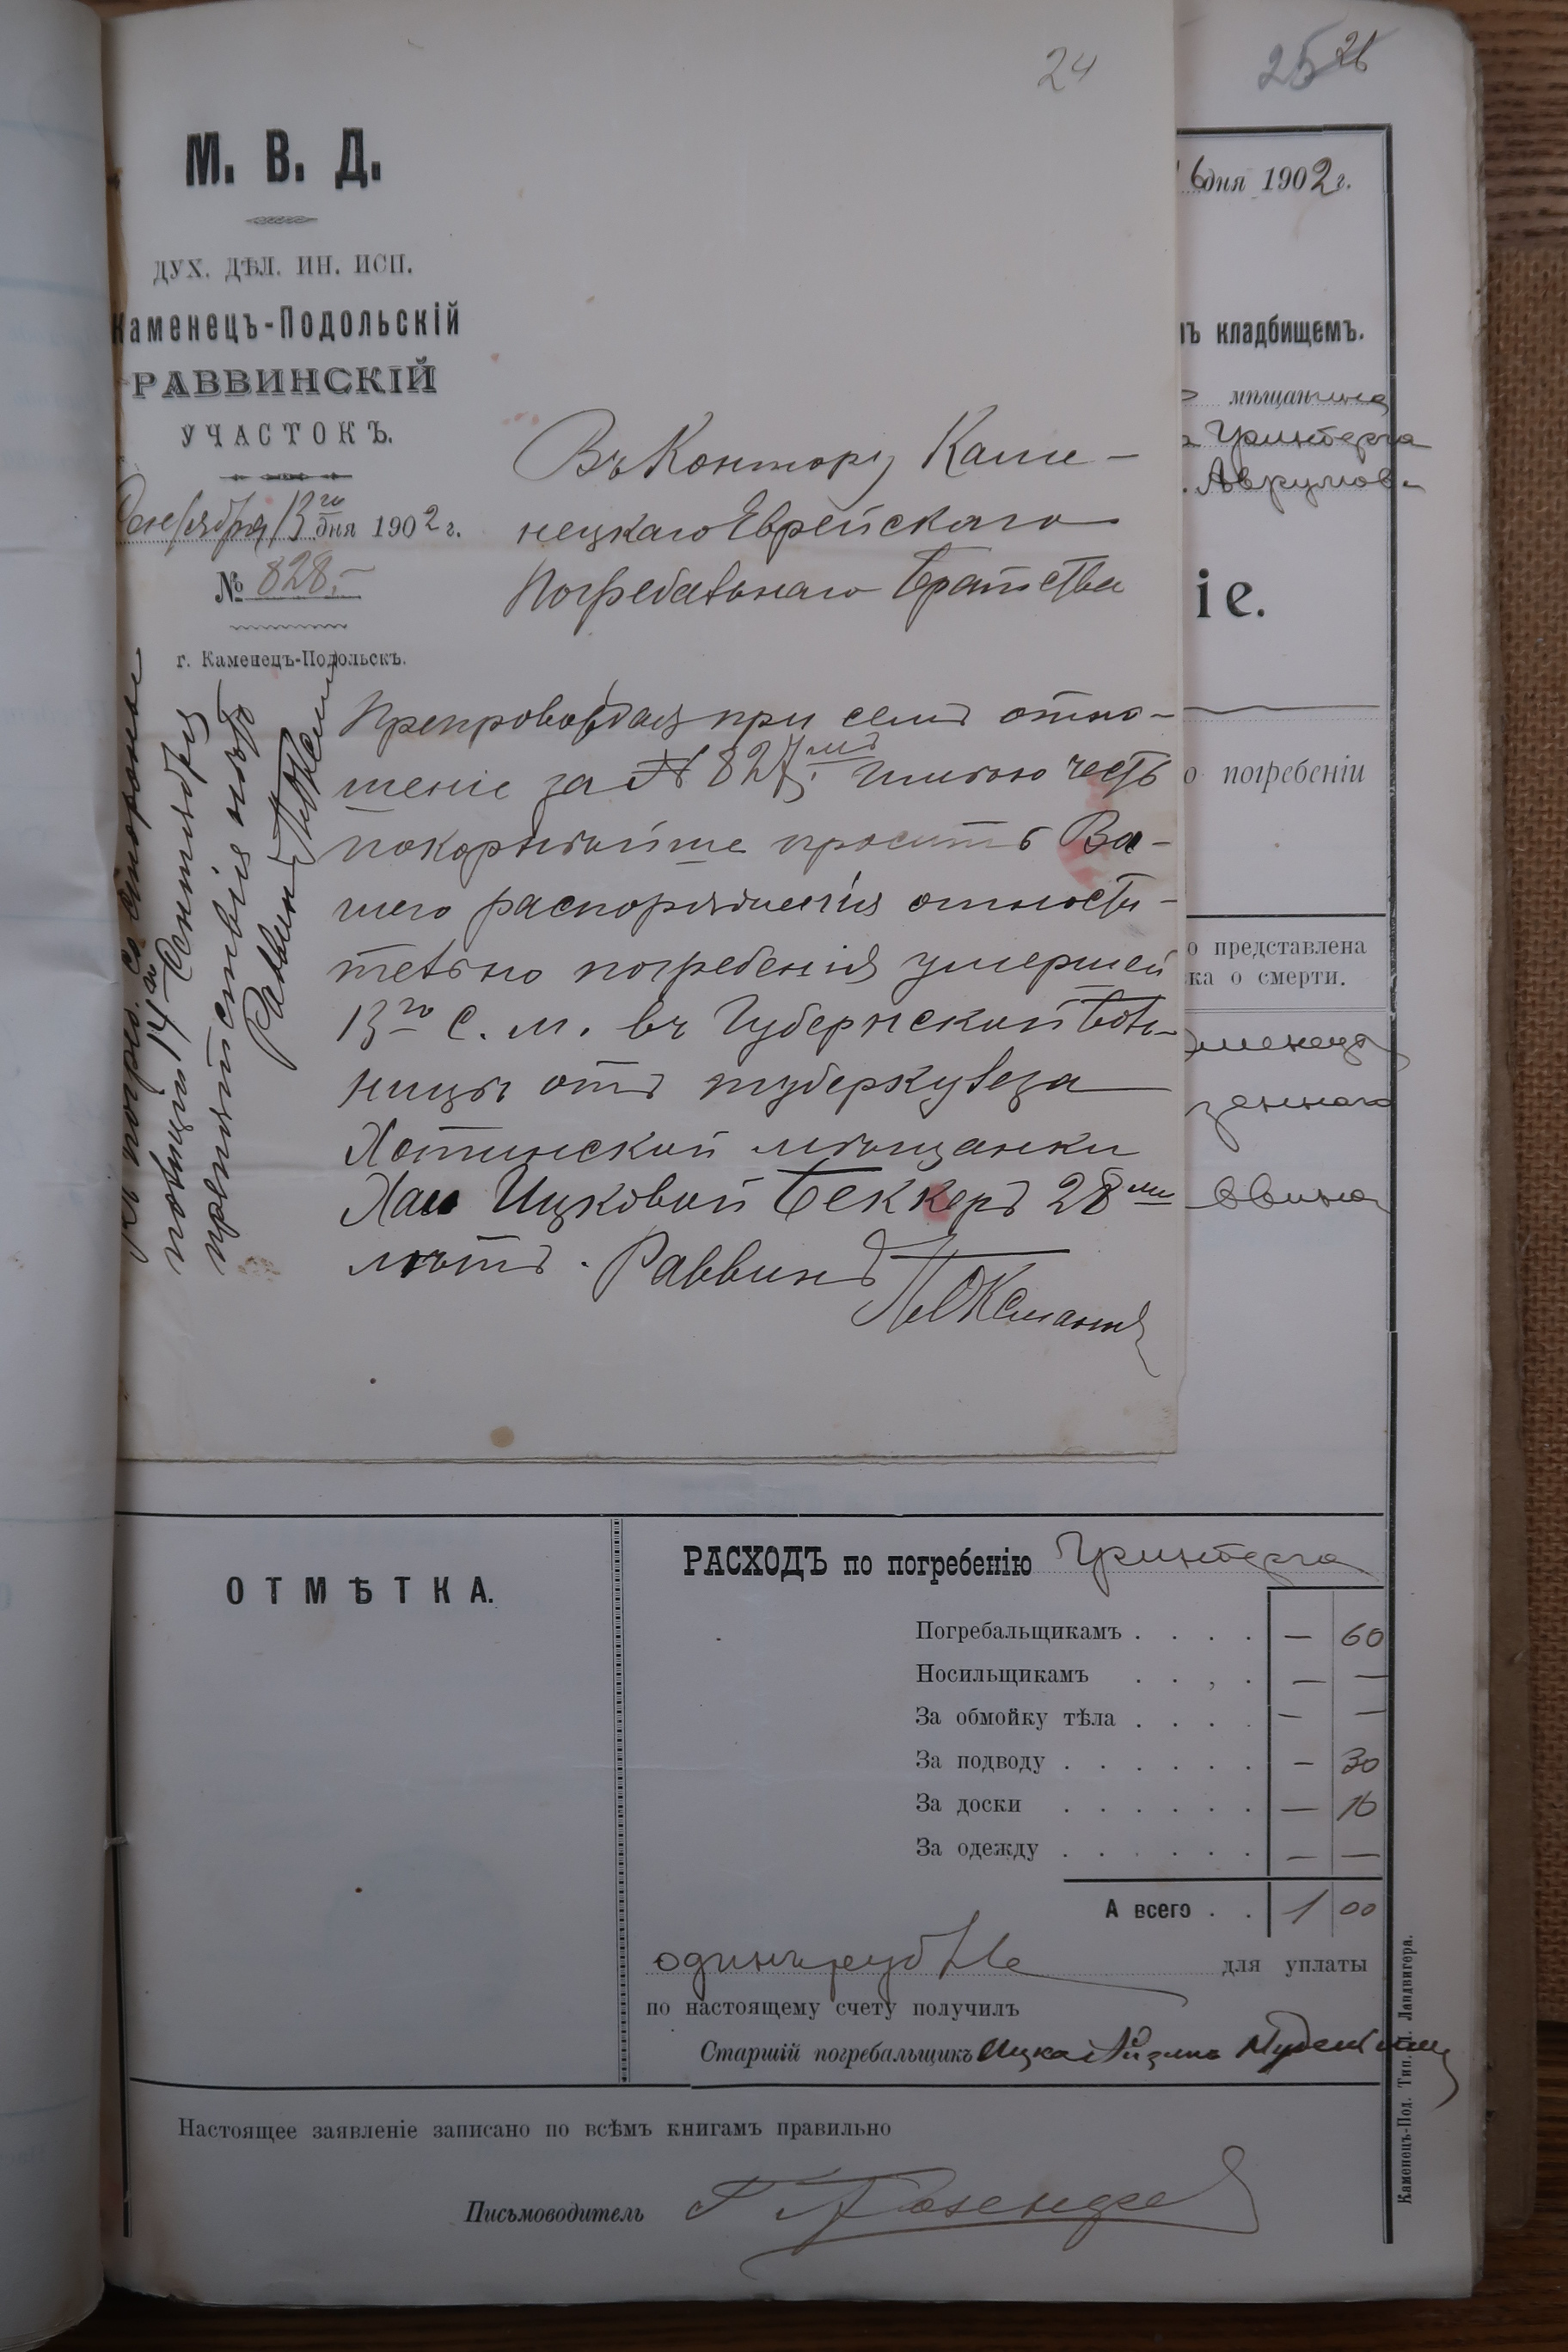 24
25 26
М. В. Д.
ДУХ. ДѢЛ. ИН. ИСП.
Каменецъ-Подольскій
РАВВИНСКІЙ
УЧАСТОКЪ.
Сентября 13го дня 1902 г.
№ 828.—
г. Каменецъ-Подольскъ.
Въ Контору Каме-
нецкаго Еврейскаго
Погребальнаго Братства
Препровождая при семъ отно-
шеніе за № 827мъ. имѣю честь
покорнѣйше просить Ва-
шего распоряженія относи-
тельно погребенія умершей
13го с. м. въ Губернской боль-
ницѣ отъ туберкулеза
Хотинской мѣщанки
Хаи Ицковой Беккеръ 28ми
лѣтъ. Раввинъ
Къ погреб. со стороны
полиціи 14го Сентября
препятствія нѣтъ
Раввинъ
6 дня 1902 г.
ъ кладбищемъ.
мѣщанина
Гринберга
Аврумов.
іе.
о погребеніи
о представлена
ка о смерти.
зеннаго
ввина
ОТМѢТКА.
РАСХОДЪ по погребенію Гринберга
Погребальщикамъ . . . . — 60
Носильщикамъ . . , . — —
За обмойку тѣла . . . . — —
За подводу . . . . . . — 30
За доски . . . . . . — 10
За одежду . . . . . . — —
А всего . . 1 00
одинъ рубль для уплаты
по настоящему счету получилъ
Старшій погребальщикъ Ицко Айзикъ
Настоящее заявленіе записано по всѣмъ книгамъ правильно
Письмоводитель
Каменецъ-Под. Тип. Л. Ландвигера.